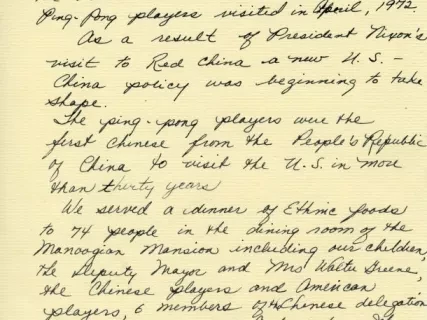 Ping-Pong players visited in April, 1972.
As a result of President Nixon's
visit to Red China a new U.S. -
China policy was beginning to take
shape.
The ping-pong players were the
first Chinese from the People's Republic
of China to visit the U.S. in more
than thirty years
We served a dinner of Ethnic foods
to 74 people in the dining room of the
Manoogian Mansion including our children,
the Deputy Mayor and Mrs Walter Greene,
the Chinese players and American
players, 6 members of the Chinese delegation